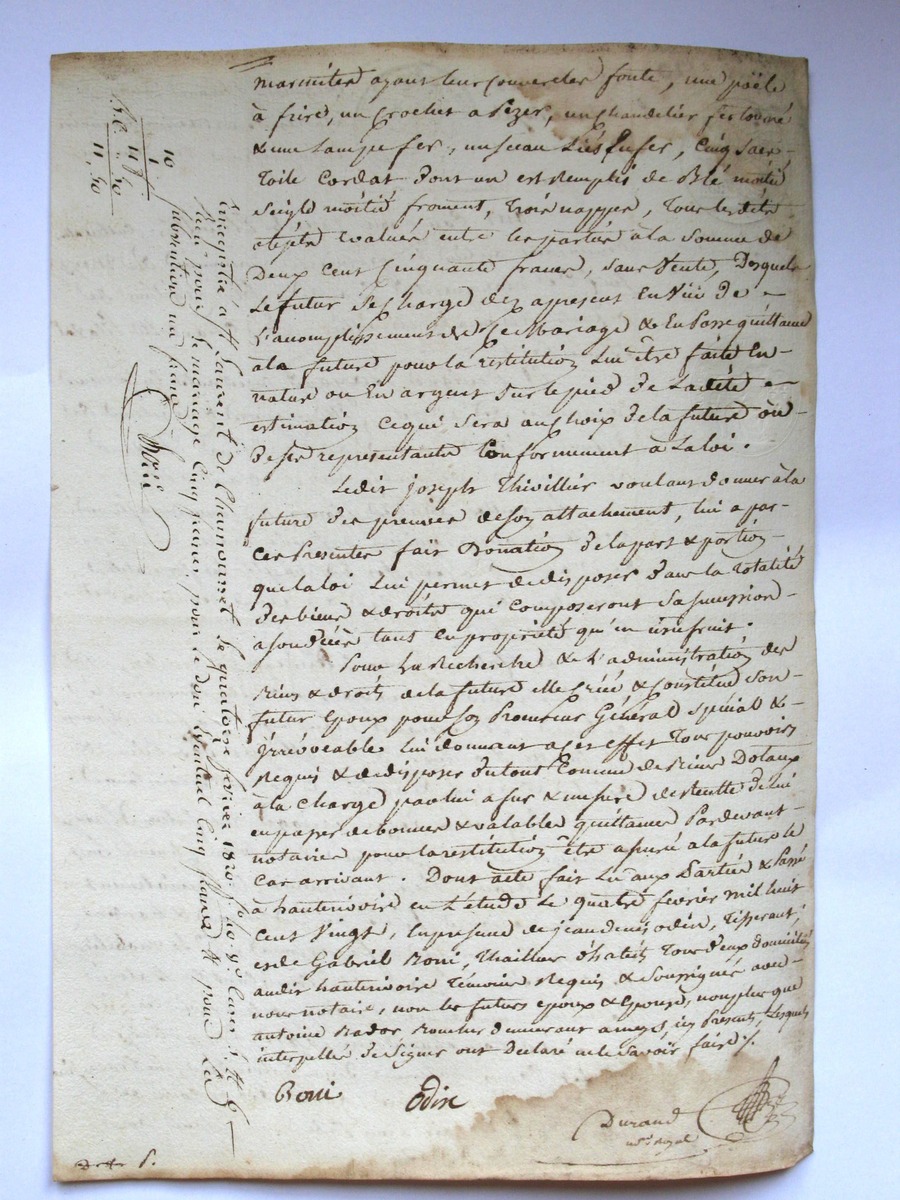 marmites ayant leur couvercles fonte, une poële
à frire, un crochet a pezer, un chandelier fer tourné
& une lampe fer, un seau liés en fer, cinq sacs
toile cordat dont un est remplis de blé moitié
seigle moitié froment, trois nappes, tous les dits
objets evalués entre les parties à la somme de
deux cent cinquante francs, sans vente, desquels
le futur se charge dez apresent en vüe de
l'accomplissement de ce mariage & en passe quittance
à la future pour la restitution lui être faite en
nature ou en argent sur le pied de la dite
estimation ce qui sera au choix de la future ou
de ses representants conformement à la loi.
Ledit joseph Thivillier voulant donner à la
future des preuves de son attachement, lui a par
ces presentes fait donation de la part & portion
que la loi lui permet de disposer dans la totalité
des biens & droits qui composeront sa succession
a son décès tant en propriété qu'en usufruit.
Pour la recherche & l'administration des
biens & droits de la future elle créé & constitue son
futur epoux pour son procureur général spécial &
irrévocable lui donnant a cet effet tous pouvoirs
requis & de disposer du tout comme de biens dotaux
à la charge par lui a fur & mesure de recette de lui
en passer de bonnes & valables quittances pardevant
notaires pour la restitution être assuré à la future le
cas arrivant. Dont acte fait lu aux parties & passé
à hauterivoire en l'étude le quatre février mil huit
cent vingt, en presence de jean denis odin, tisserant,
et de Gabriel Boni, tailleur d'habits tous deux domiciliés
audit hauterivoire témoins requis & soussignés avec
nous notaire, non les futurs epoux & epouse, non plus que
antoine demeurant a ici présents lesquels
interpellés de signer ont déclaré ne le savoir faire
Boni Odin
Durand
n.re royal
Enregistré à St Laurent de Chamousset le quatorze février 1820, f.o
reçu pour le mariage cinq francs, pour le don eventuel cinq francs & pour la
subvention un franc
10
1
11
11 " 50